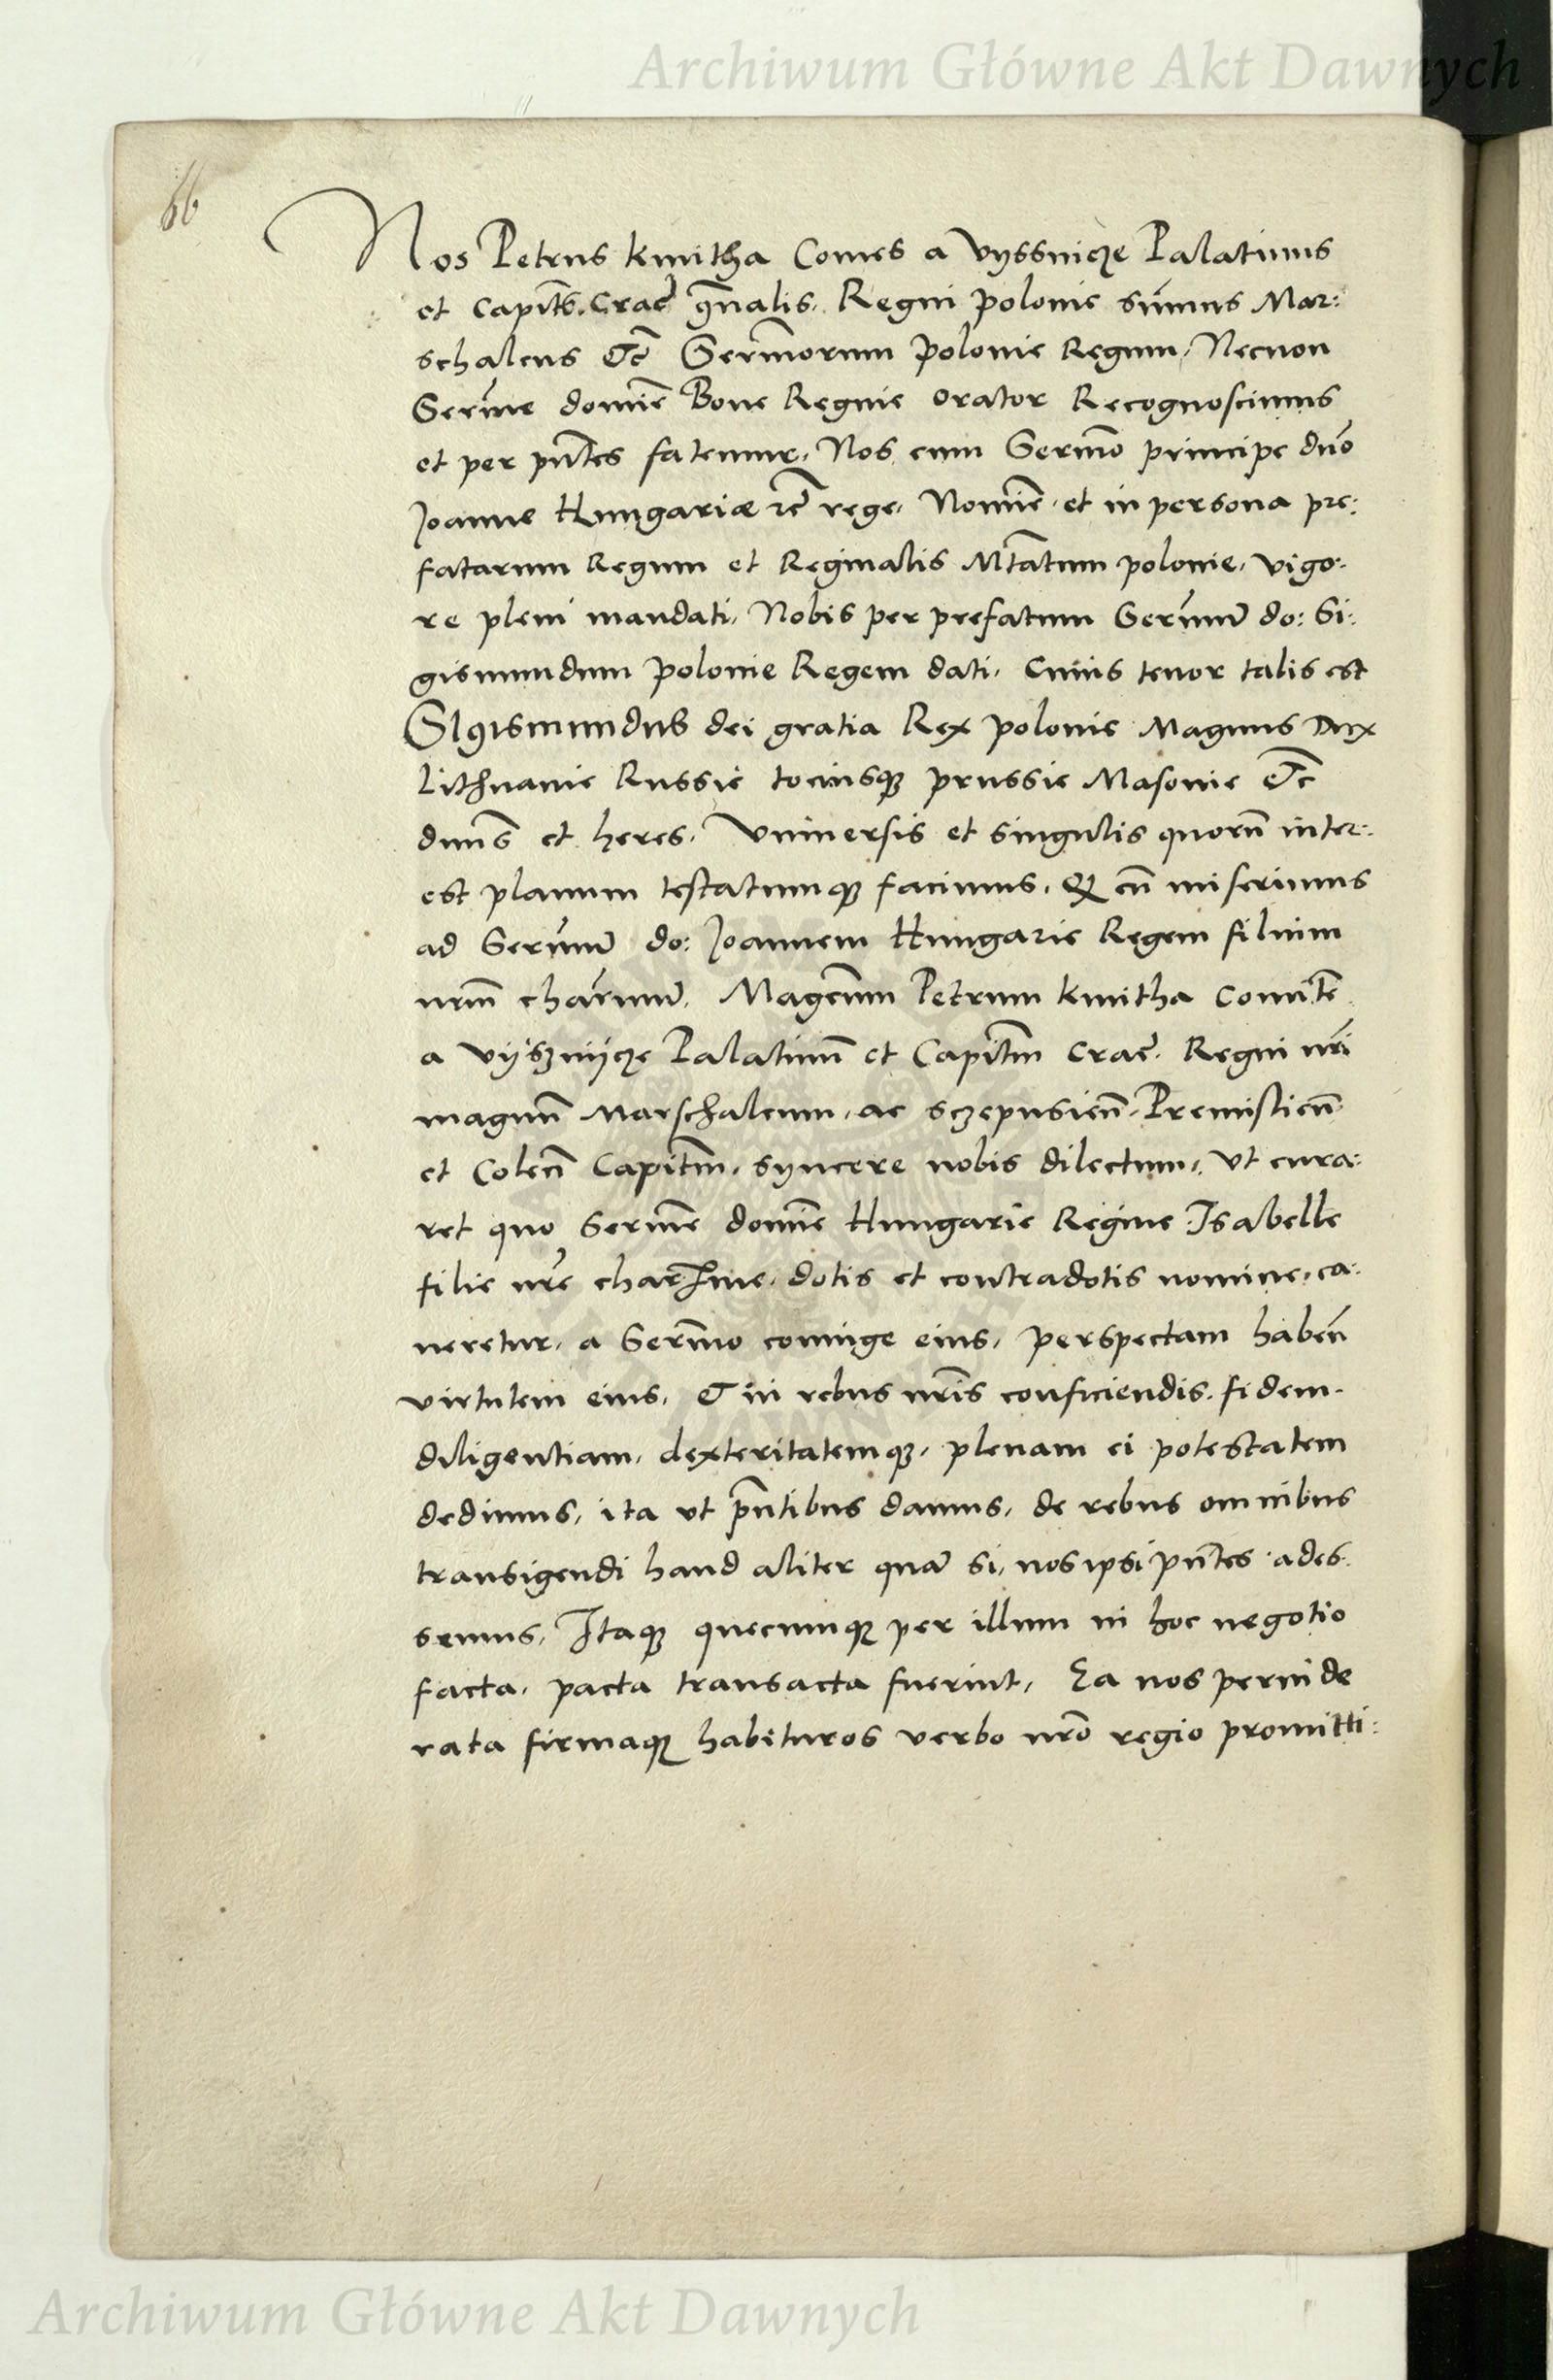 Archiwum Główne Akt Dawnych
66
Nos Petrus kmitha Comes a Vyssnicze Palatinus
et Capitꝰ. Crac̄ gn̄nalis. Regni polonie sūmus Mar:
schalcus Etc̄ Serm̄orum polonie Regum, Necnon
Serm̄e domīe Bone Regine orator Recognoscimus
et per pn̄tes fatemur. Nos cum Serm̄o principe dn̄o
Joanne Hungariæ etc̄ rege. Nomīe et in persona pre:
fatarum Regum et Reginalis Mt̄atum polonie. vigo:
re pleni mandati. Nobis per prefatum Serm̄um do: Si:
gismundum polonie Regem dati. Cuius tenor talis est
Sigismundus dei gratia Rex polonie Magnus Dux
Lithuanie Russie tociusqꝫ prussie Masouie Etc̄
dn̄us et heres. Vniuersis et singulis quorū inter:
est planum testatumqꝫ facimus. Qꝫ cū miserimus
ad Serm̄um do: Joannem Hungarie Regem filium
nr̄m char̄mum. Magcūm Petrum kmitha Comitē
a Vyszniicze Palatinū et Capitm̄ Crac̄. Regni nr̄i
magnū Marschalcum. ac sczepusieñ. Premislieñ
et Coleñ Capitm̄. syncere nobis dilectum. Vt cura:
ret quo Serm̄e domīe Hungarie Regine Isabelle
filie nr̄e char̄me. dotis et contradotis nomine. ca:
ueretur. a Serm̄o coniuge eius. perspectam habeñ
virtutem eius. Et in rebus nr̄is conficiendis. fidem.
diligentiam. dexteritatemqꝫ. plenam ei potestatem
dedimus. ita vt pn̄tibus damus. de rebus omnibus
transigendi haud aliter quā si. nos ipsi pn̄tes ades.
semus. Itaqꝫ quecumqꝫ per illum in hoc negotio
facta. pacta transacta fuerint. Ea nos perinde
rata firmaqꝫ habituros verbo nr̄o regio promitti:
Archiwum Główne Akt Dawnych